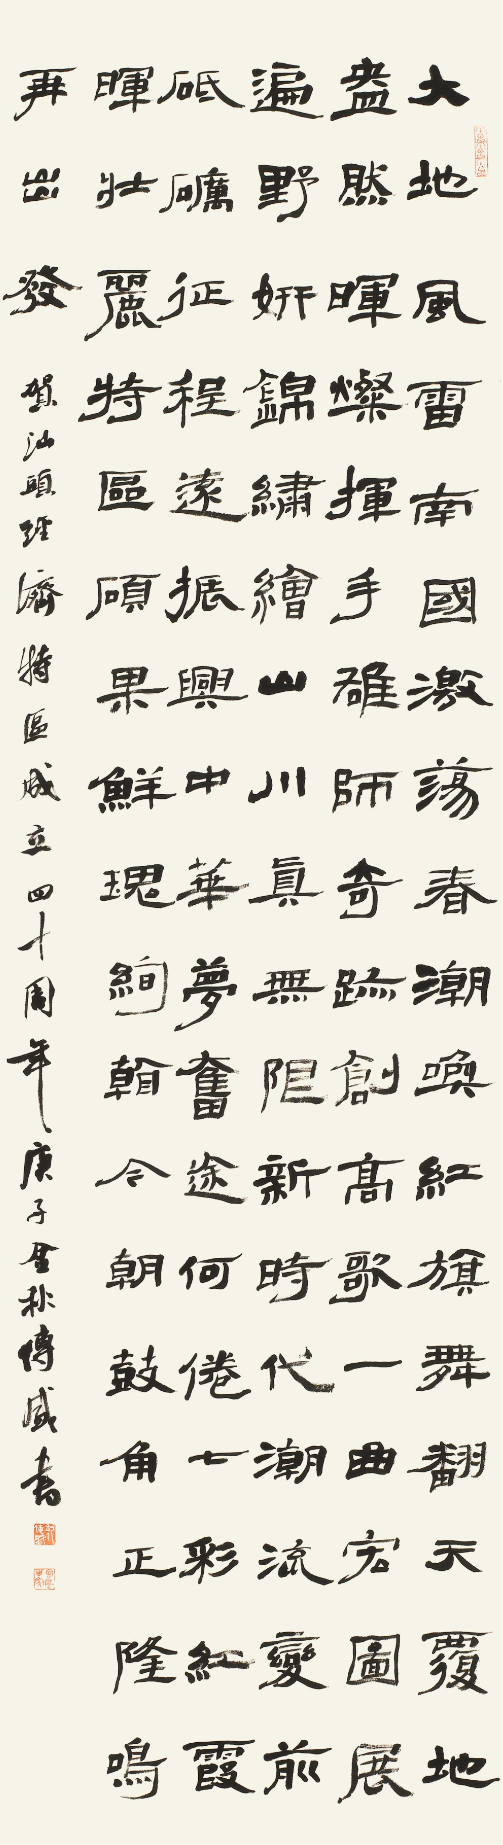 大地風雷南國激蕩春潮喚紅旗舞翻天覆地
盎然暉燦揮手雄師奇跡創高歌一曲宏圖展
遍野妍錦繡繪山川真無限新時代潮流變前
砥礪征程遠振興中華夢奮途何倦七彩紅霞
暉壯麗特區碩果鮮瑰絢翰今朝鼓角正隆鳴
再出發
賀汕頭經濟特區成立四十周年庚子金秋傳盛書